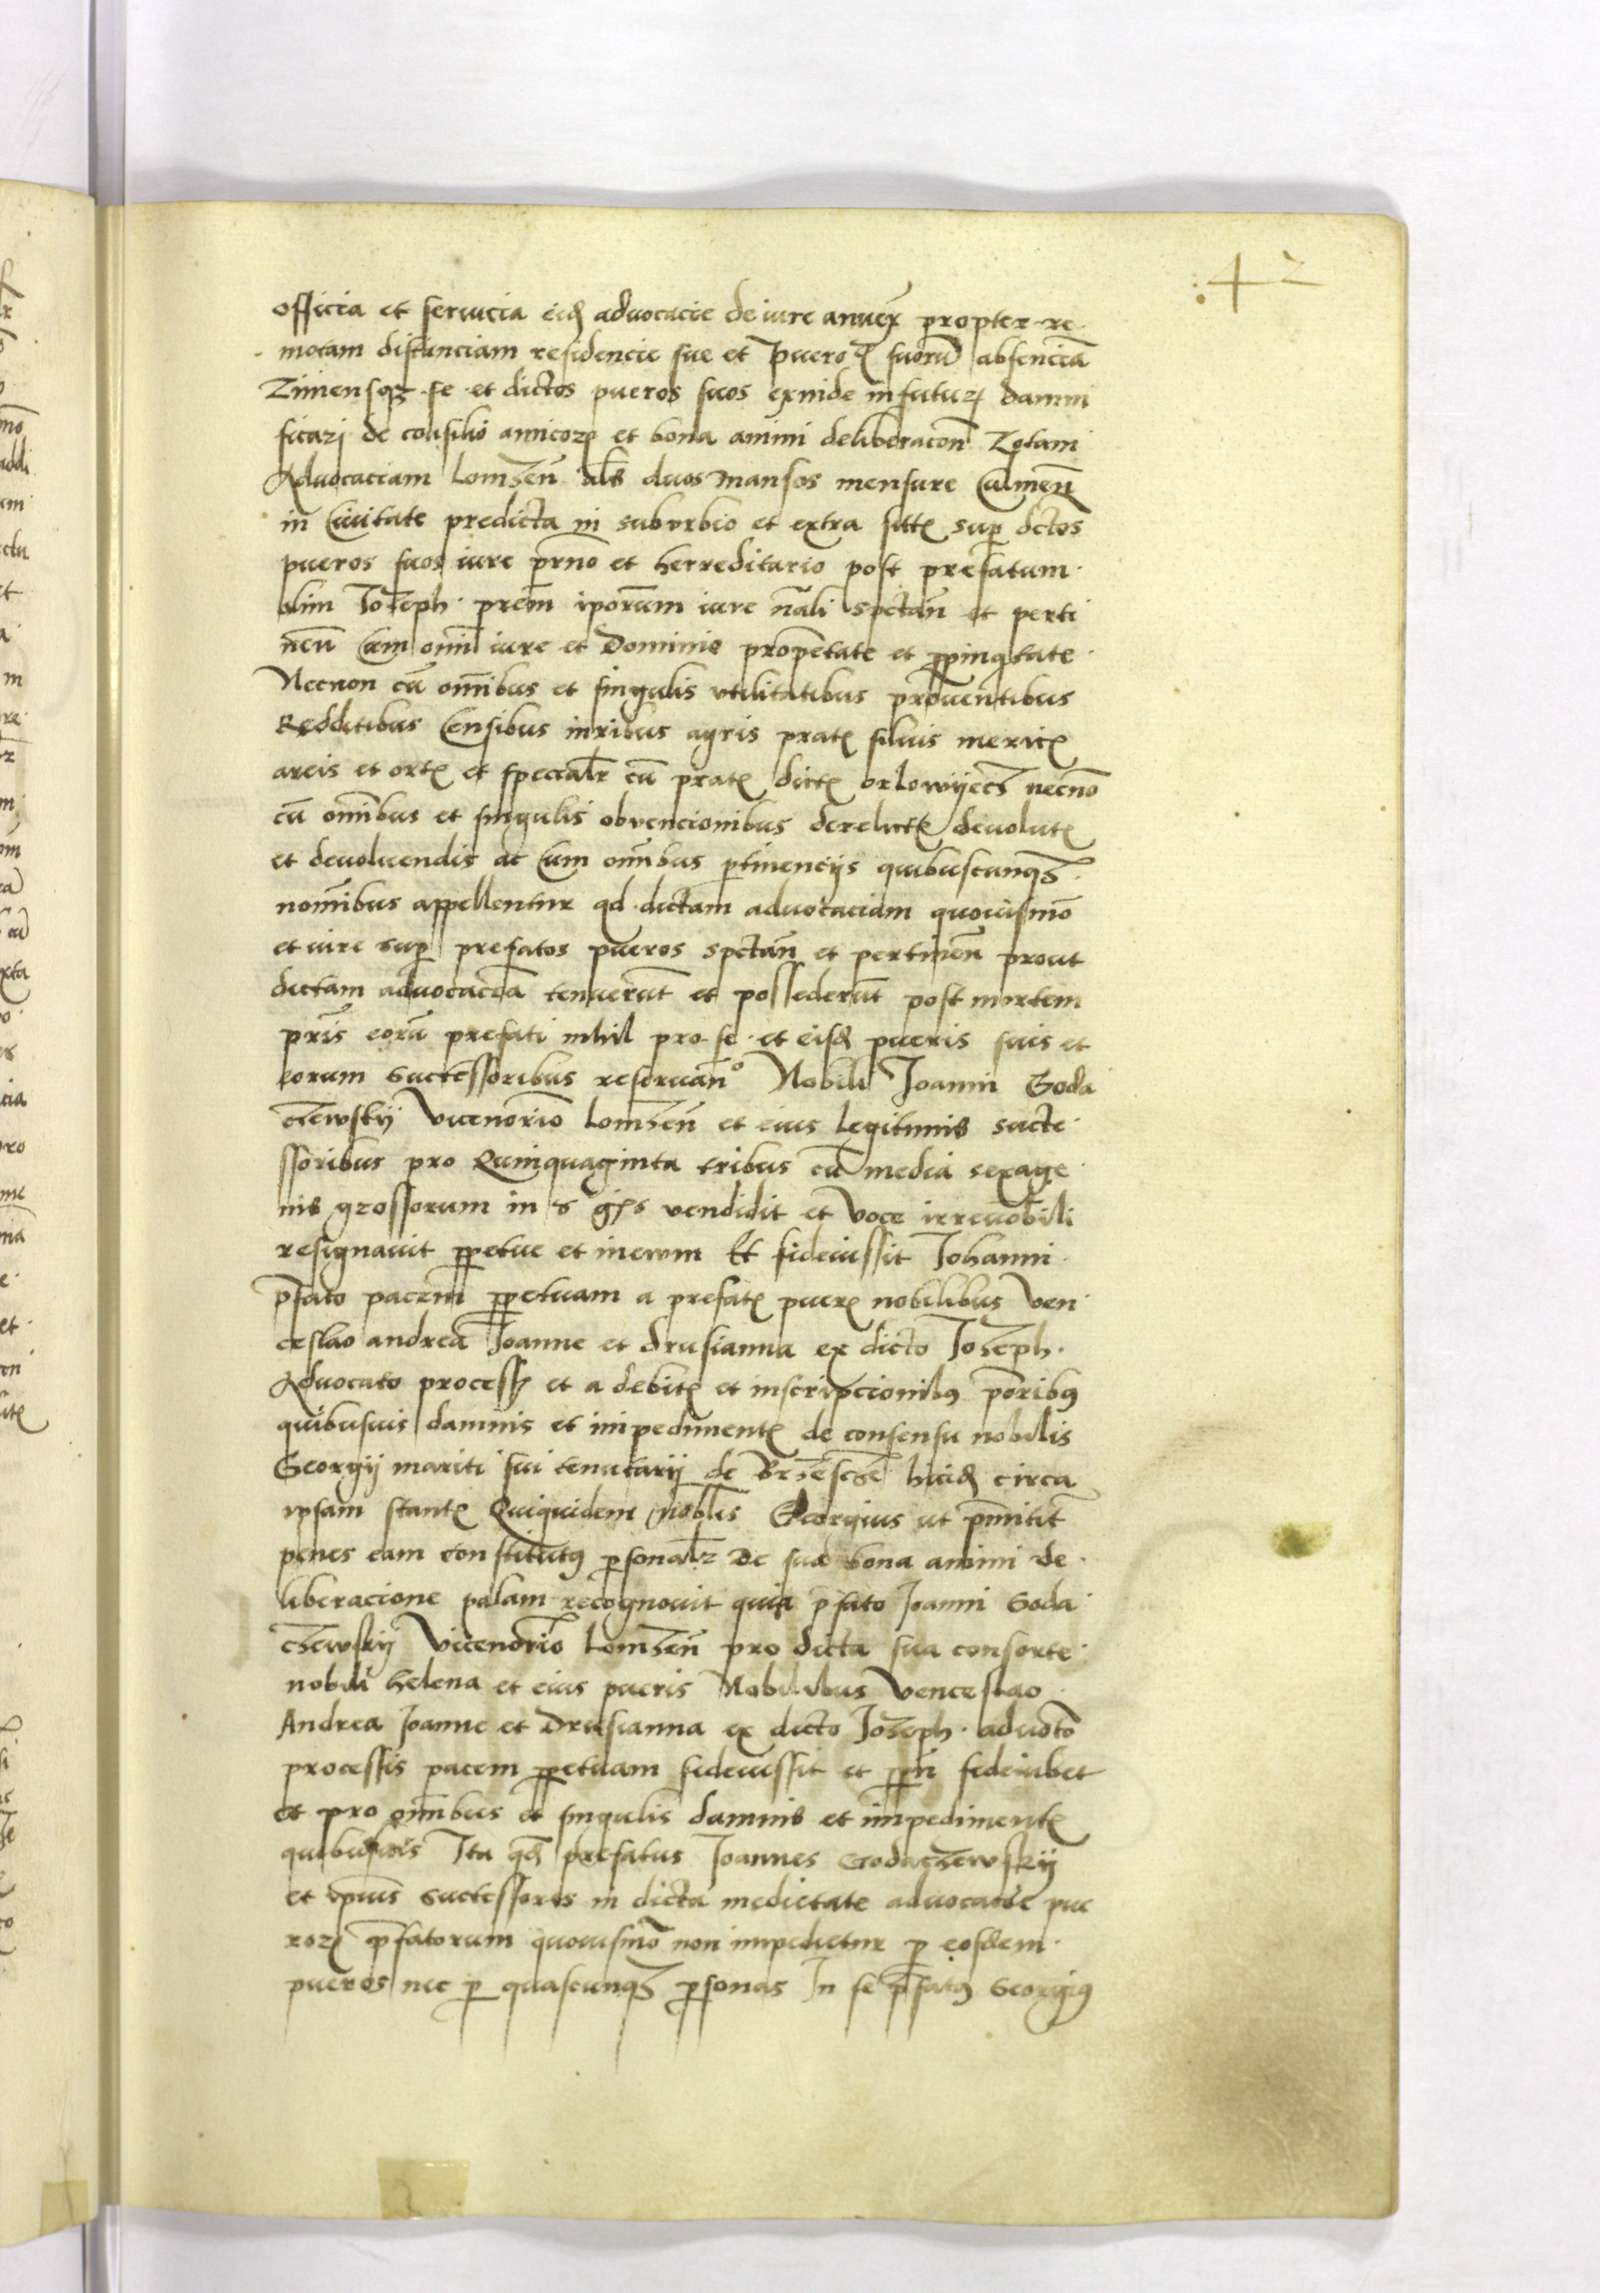 42
officia et seruicia eid advocacie de iure annex propter re
motam distanciam residencie sue et pueroꝝ suorū absenciā
Timensqꝫ se et dictos pueros suos exinde in futuꝝ damni
ficari de consilio amicoꝝ et bona animi deliberacoñ Totam
Advocaciam Lomzeñ als duos mansos mensure Culmeñ
in Civitate predicta in suburbio et extra sitꝭ sup dctos
pueros suos iure pr̄no et herreditario post prefatum
olim Joseph prēm ipōrum iure nāli spectañ et perti
neñ Cum omni iure et Dominio proprietate et ꝓpinqtate
Necnon cū om̄ibus et singulis vtilitatibus proventibus
Redditibus Censibus iuribus agris pratꝭ siluis mericꝭ
areis et ortꝭ et speccialr cū pratꝭ dictꝭ orlowyecz necnō
cū om̄ibus et singulis obvencionibus derelictꝭ devolutꝭ
et devoluendis ac Cum om̄ibus ꝑtinencijs quibuscunqꝫ
nom̄ibus appellentur qd dictam advocaciam quouismō
et iure sup prefatos pueros spectañ et pertineñ prout
dictam advocaciā tenuerūt et possederūt post mortem
pr̄is eorū prefati nihil pro se et eisd pueris suis et
eorum successoribus reservanº Nobili Joanni Goda
czewskij Vicenōrio Lomzeñ et eius legitimis succe
ssoribus pro Quinquaginta tribus cū media sexage
nis grossorum in vendidit et voce irreuobili
resignavit ꝑpetue et in ewm Et fideiussit Johanni
p̄fato pacem ꝑpetuam a prefatꝭ puerꝭ nobilibus Ven
ceslao andrea Joanne et drusianna ex dicto Jozeph
Advocato processꝭ et a debitꝭ et inscripcionibꝰ pōribꝰ
quibusuis damnis et impedimentꝭ de consensu nobilis
Georgij mariti sui tenutarij de ibid circa
ipsam stantꝭ Quiquidem nobl̄is Georgius ut pm̄ititr
penes eam constitutꝰ ꝑsonalr de sua bona animi de
liberacione palam recognovit quia p̄fato Joanni Goda
czewskij Vicenōrio Lomzeñ pro dicta sua consorte
nobili helena et eius pueris Nobilibus Venceslao
Andrea Joanne et Drusianna ex dicto Jozeph advoctō
processis pacem ꝑpetuam fideiussit et fideiubet
et pro om̄ibus et singulis damnis et impedimentꝭ
quibusuis Ita qd prefatus Joannes Godaczewskij
et ipius successores in dicta medietate advocacie pue
roꝝ p̄fatorum quouismō non impedietur ꝑ eosdem
pueros nec ꝑ quascunqꝫ ꝑsonas In se p̄fatꝰ Georgiꝰ